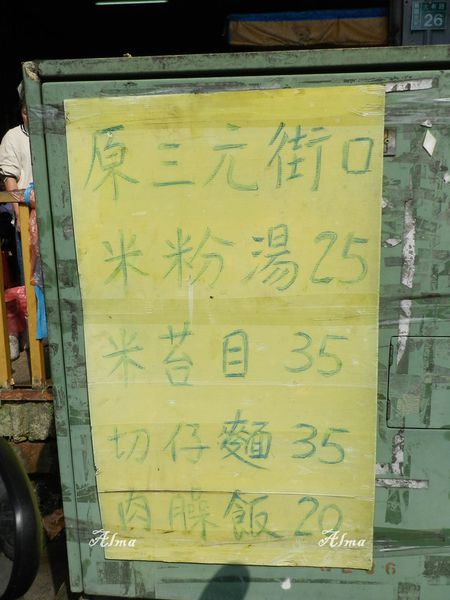 26
原三元街口
米粉湯25
米苔目 35
切仔麵 35
肉臊飯 20
Alma Alma